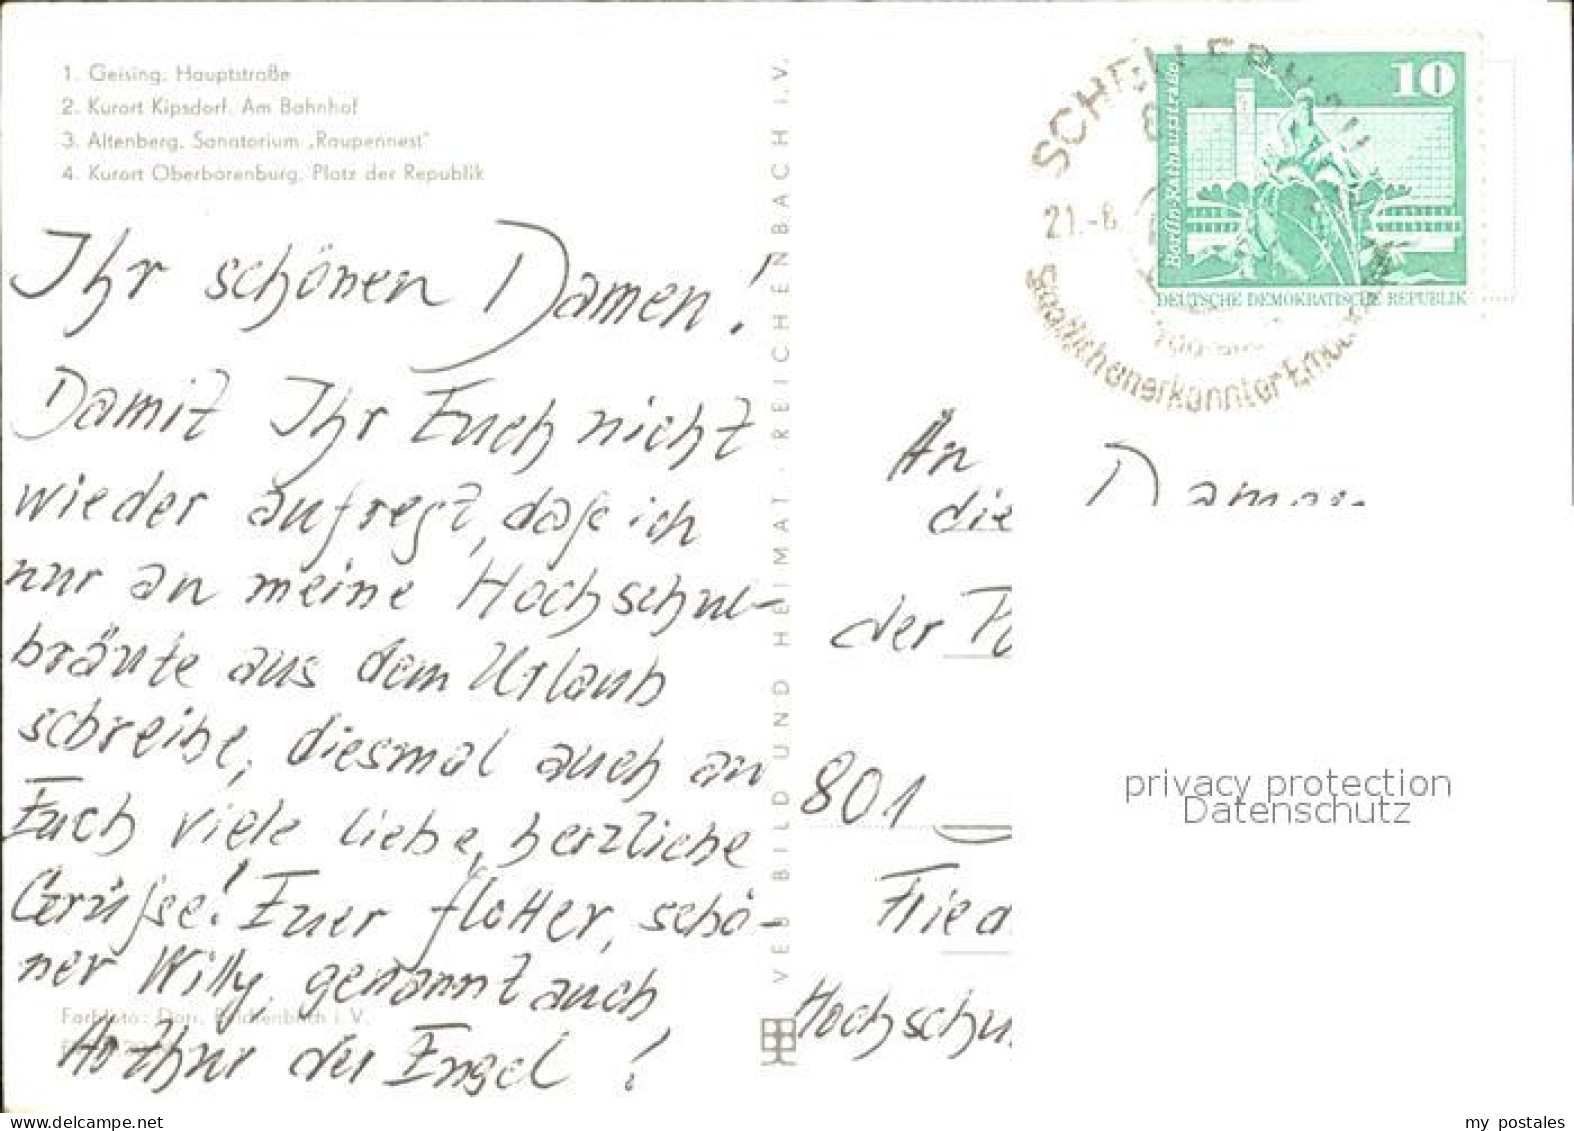 1. Geising. Hauptstraße
2. Kurort Kipsdorf. Am Bahnhof
3. Altenberg. Sanatorium „Raupennest"
4. Kurort Oberbärenburg. Platz der Republik
Ihr schönen Damen!
Damit Ihr Euch nicht
wieder aufregt, daß ich
nur an meine Hochschul-
bräute aus dem Urlaub
schreibe, diesmal auch an
Euch viele liebe, herzliche
Grüße! Euer flotter, schö-
ner Willy, genannt auch
Arthur der Engel!
Farbfoto: Darr, Reichenbach i. V.
VEB BILD UND HEIMAT · REICHENBACH i.V.
10
Berlin-Rathausstraße
DEUTSCHE DEMOKRATISCHE REPUBLIK
SCHELLERHAU
21.-8.
Staatlich anerkannter
An
die Damen
der
801
Fried
Hochschu
privacy protection
Datenschutz
www.delcampe.net
my postales